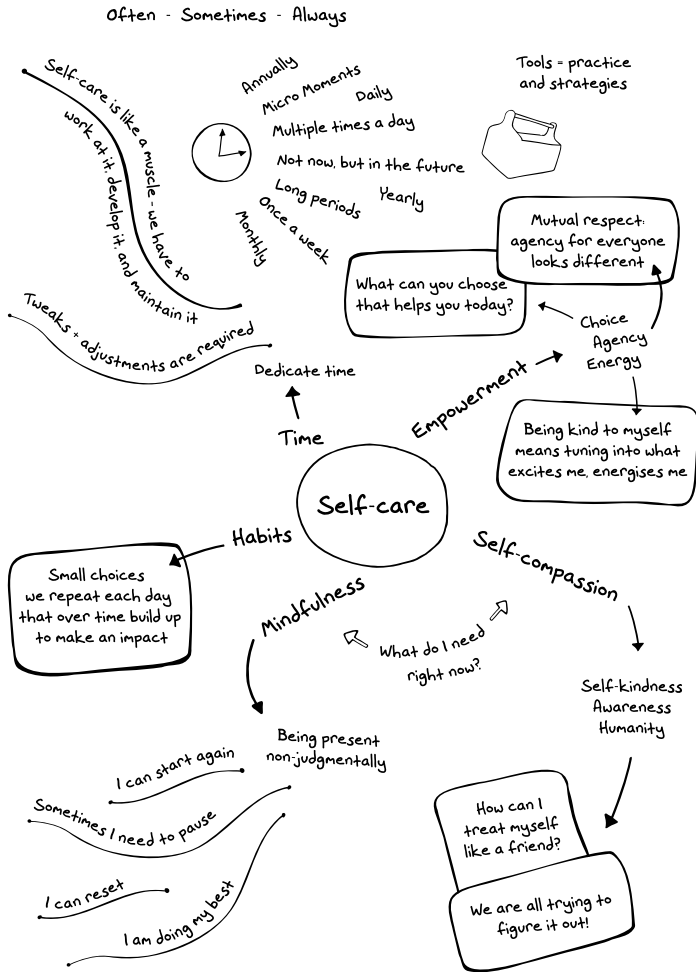 Often - Sometimes - Always
Self-care is like a muscle - we have to
work at it, develop it, and maintain it
Annually
Micro Moments
Daily
Multiple times a day
Not now, but in the future
Long periods
Yearly
Once a week
Monthly
Tools = practice
and strategies
Mutual respect:
agency for everyone
looks different
What can you choose
that helps you today?
Choice
Agency
Energy
Tweaks + adjustments are required
Dedicate time
Time
Empowerment
Being kind to myself
means tuning into what
excites me, energises me
Self-care
Habits
Small choices
we repeat each day
that over time build up
to make an impact
Mindfulness
Self-compassion
What do I need
right now?
Self-kindness
Awareness
Humanity
Being present
non-judgmentally
I can start again
Sometimes I need to pause
I can reset
I am doing my best
How can I
treat myself
like a friend?
We are all trying to
figure it out!